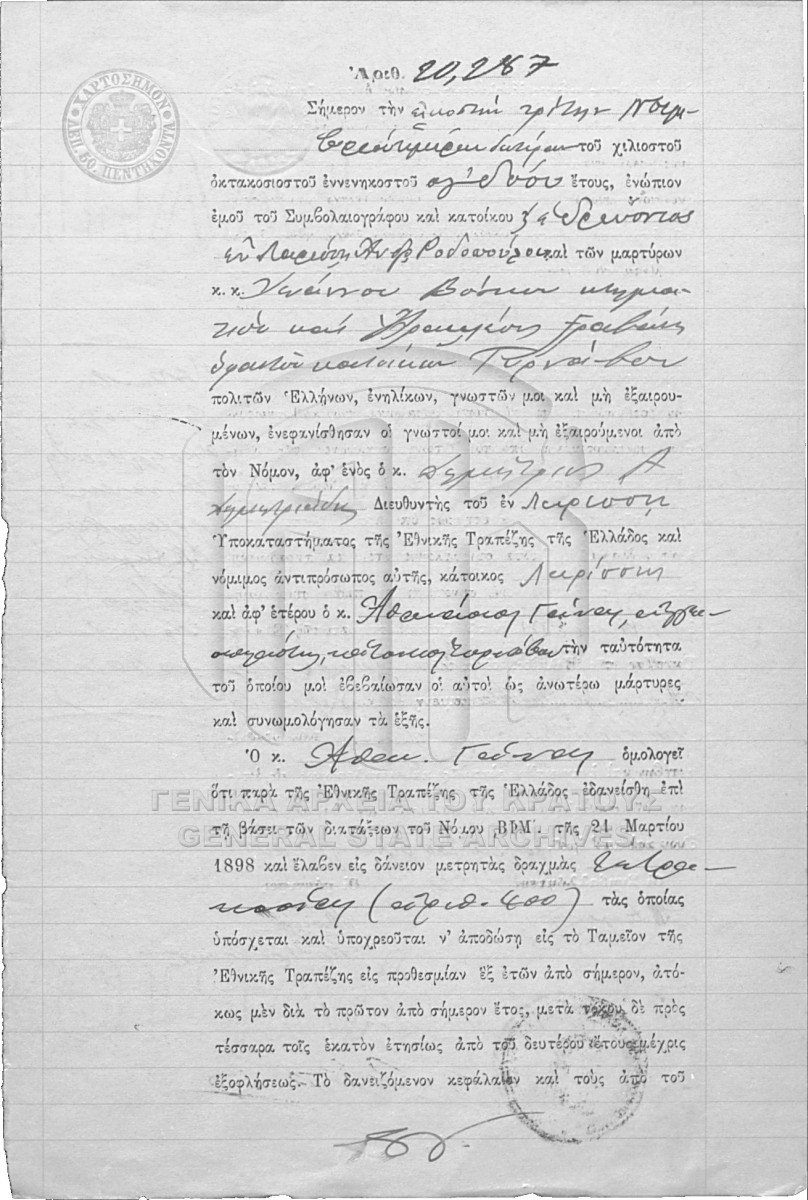 ΧΑΡΤΟΣΗΜΟΝ
Ἀριθ. 20,287
Σήμερον τὴν εἰκοστὴν τρίτην Νοεμ-
βρίου ἡμέραν τοῦ χιλιοστοῦ
ὀκτακοσιοστοῦ ἐννενηκοστοῦ ὀγδόου ἔτους, ἐνώπιον
ἐμοῦ τοῦ Συμβολαιογράφου καὶ κατοίκου
ἐν Λαρίσσῃ καὶ τῶν μαρτύρων
κ. κ. Ἰωάννου κτημα-
τίου καὶ Ἡρακλέους
κατοίκων Τυρνάβου
πολιτῶν Ἑλλήνων, ἐνηλίκων, γνωστῶν μοι καὶ μὴ ἐξαιρου-
μένων, ἐνεφανίσθησαν οἱ γνωστοί μοι καὶ μὴ ἐξαιρούμενοι ἀπὸ
τὸν Νόμον, ἀφ' ἑνὸς ὁ κ. Δημήτριος Α
Δημητριάδης Διευθυντὴς τοῦ ἐν Λαρίσσῃ
Ὑποκαταστήματος τῆς Ἐθνικῆς Τραπέζης τῆς Ἑλλάδος καὶ
νόμιμος ἀντιπρόσωπος αὐτῆς, κάτοικος Λαρίσσης
καὶ ἀφ' ἑτέρου ὁ κ. Ἀθανάσιος Γούναρ,
κάτοικος Τυρνάβου τὴν ταὐτότητα
τοῦ ὁποίου μοὶ ἐβεβαίωσαν οἱ αὐτοὶ ὡς ἀνωτέρω μάρτυρες
καὶ συνωμολόγησαν τὰ ἑξῆς.
Ὁ κ. Ἀθαν. ὁμολογεῖ
ὅτι παρὰ τῆς Ἐθνικῆς Τραπέζης τῆς Ἑλλάδος ἐδανείσθη ἐπὶ
ΓΕΝΙΚΑ ΑΡΧΕΙΑ ΤΟΥ ΚΡΑΤΟΥΣ
τῇ βάσει τῶν διατάξεων τοῦ Νόμου ͵ΒΦΜ΄. τῆς 21 Μαρτίου
GENERAL STATE ARCHIVES
1898 καὶ ἔλαβεν εἰς δάνειον μετρητὰς δραχμὰς τετρα-
κοσίας (ἀριθ. 400) τὰς ὁποίας
ὑπόσχεται καὶ ὑποχρεοῦται ν' ἀποδώσῃ εἰς τὸ Ταμεῖον τῆς
Ἐθνικῆς Τραπέζης εἰς προθεσμίαν ἓξ ἐτῶν ἀπὸ σήμερον, ἀτό-
κως μὲν διὰ τὸ πρῶτον ἀπὸ σήμερον ἔτος, μετὰ τόκου δὲ πρὸς
τέσσαρα τοῖς ἑκατὸν ἐτησίως ἀπὸ τοῦ δευτέρου ἔτους μέχρις
ἐξοφλήσεως. Τὸ δανειζόμενον κεφάλαιον καὶ τοὺς ἀπὸ τοῦ